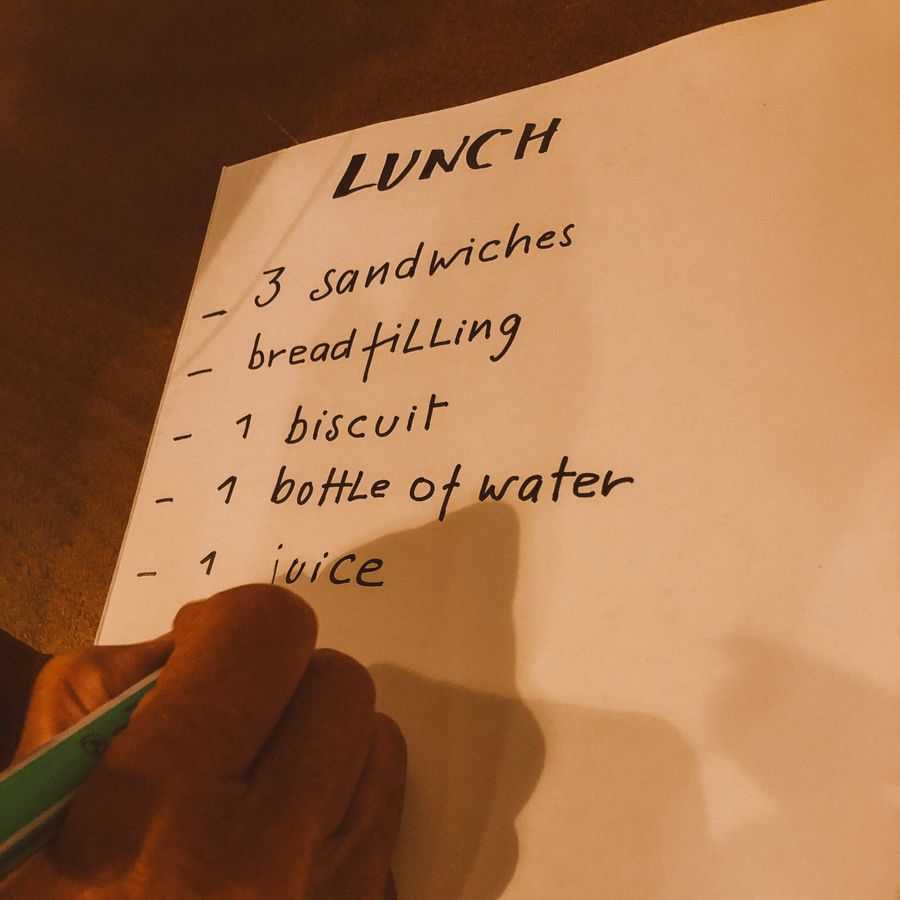 LUNCH
- 3 sandwiches
- bread filling
- 1 biscuit
- 1 bottle of water
- 1 juice